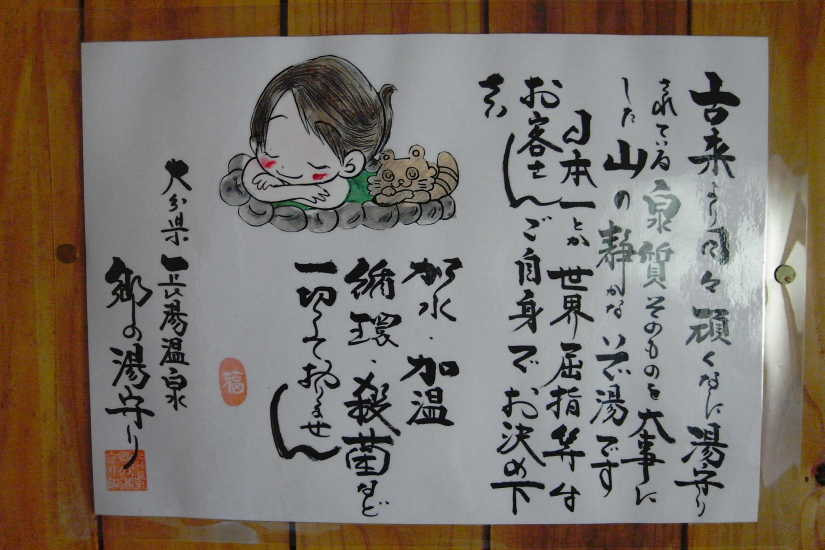 古来より日々頑くなに湯守り
されている泉質そのものを大事に
した山の静かないで湯です
日本一とか世界屈指等は
お客さんご自身でお決め下
さい
加水・加温
循環・殺菌など
一切しておりません
大分県長湯温泉
郷の湯守り
福